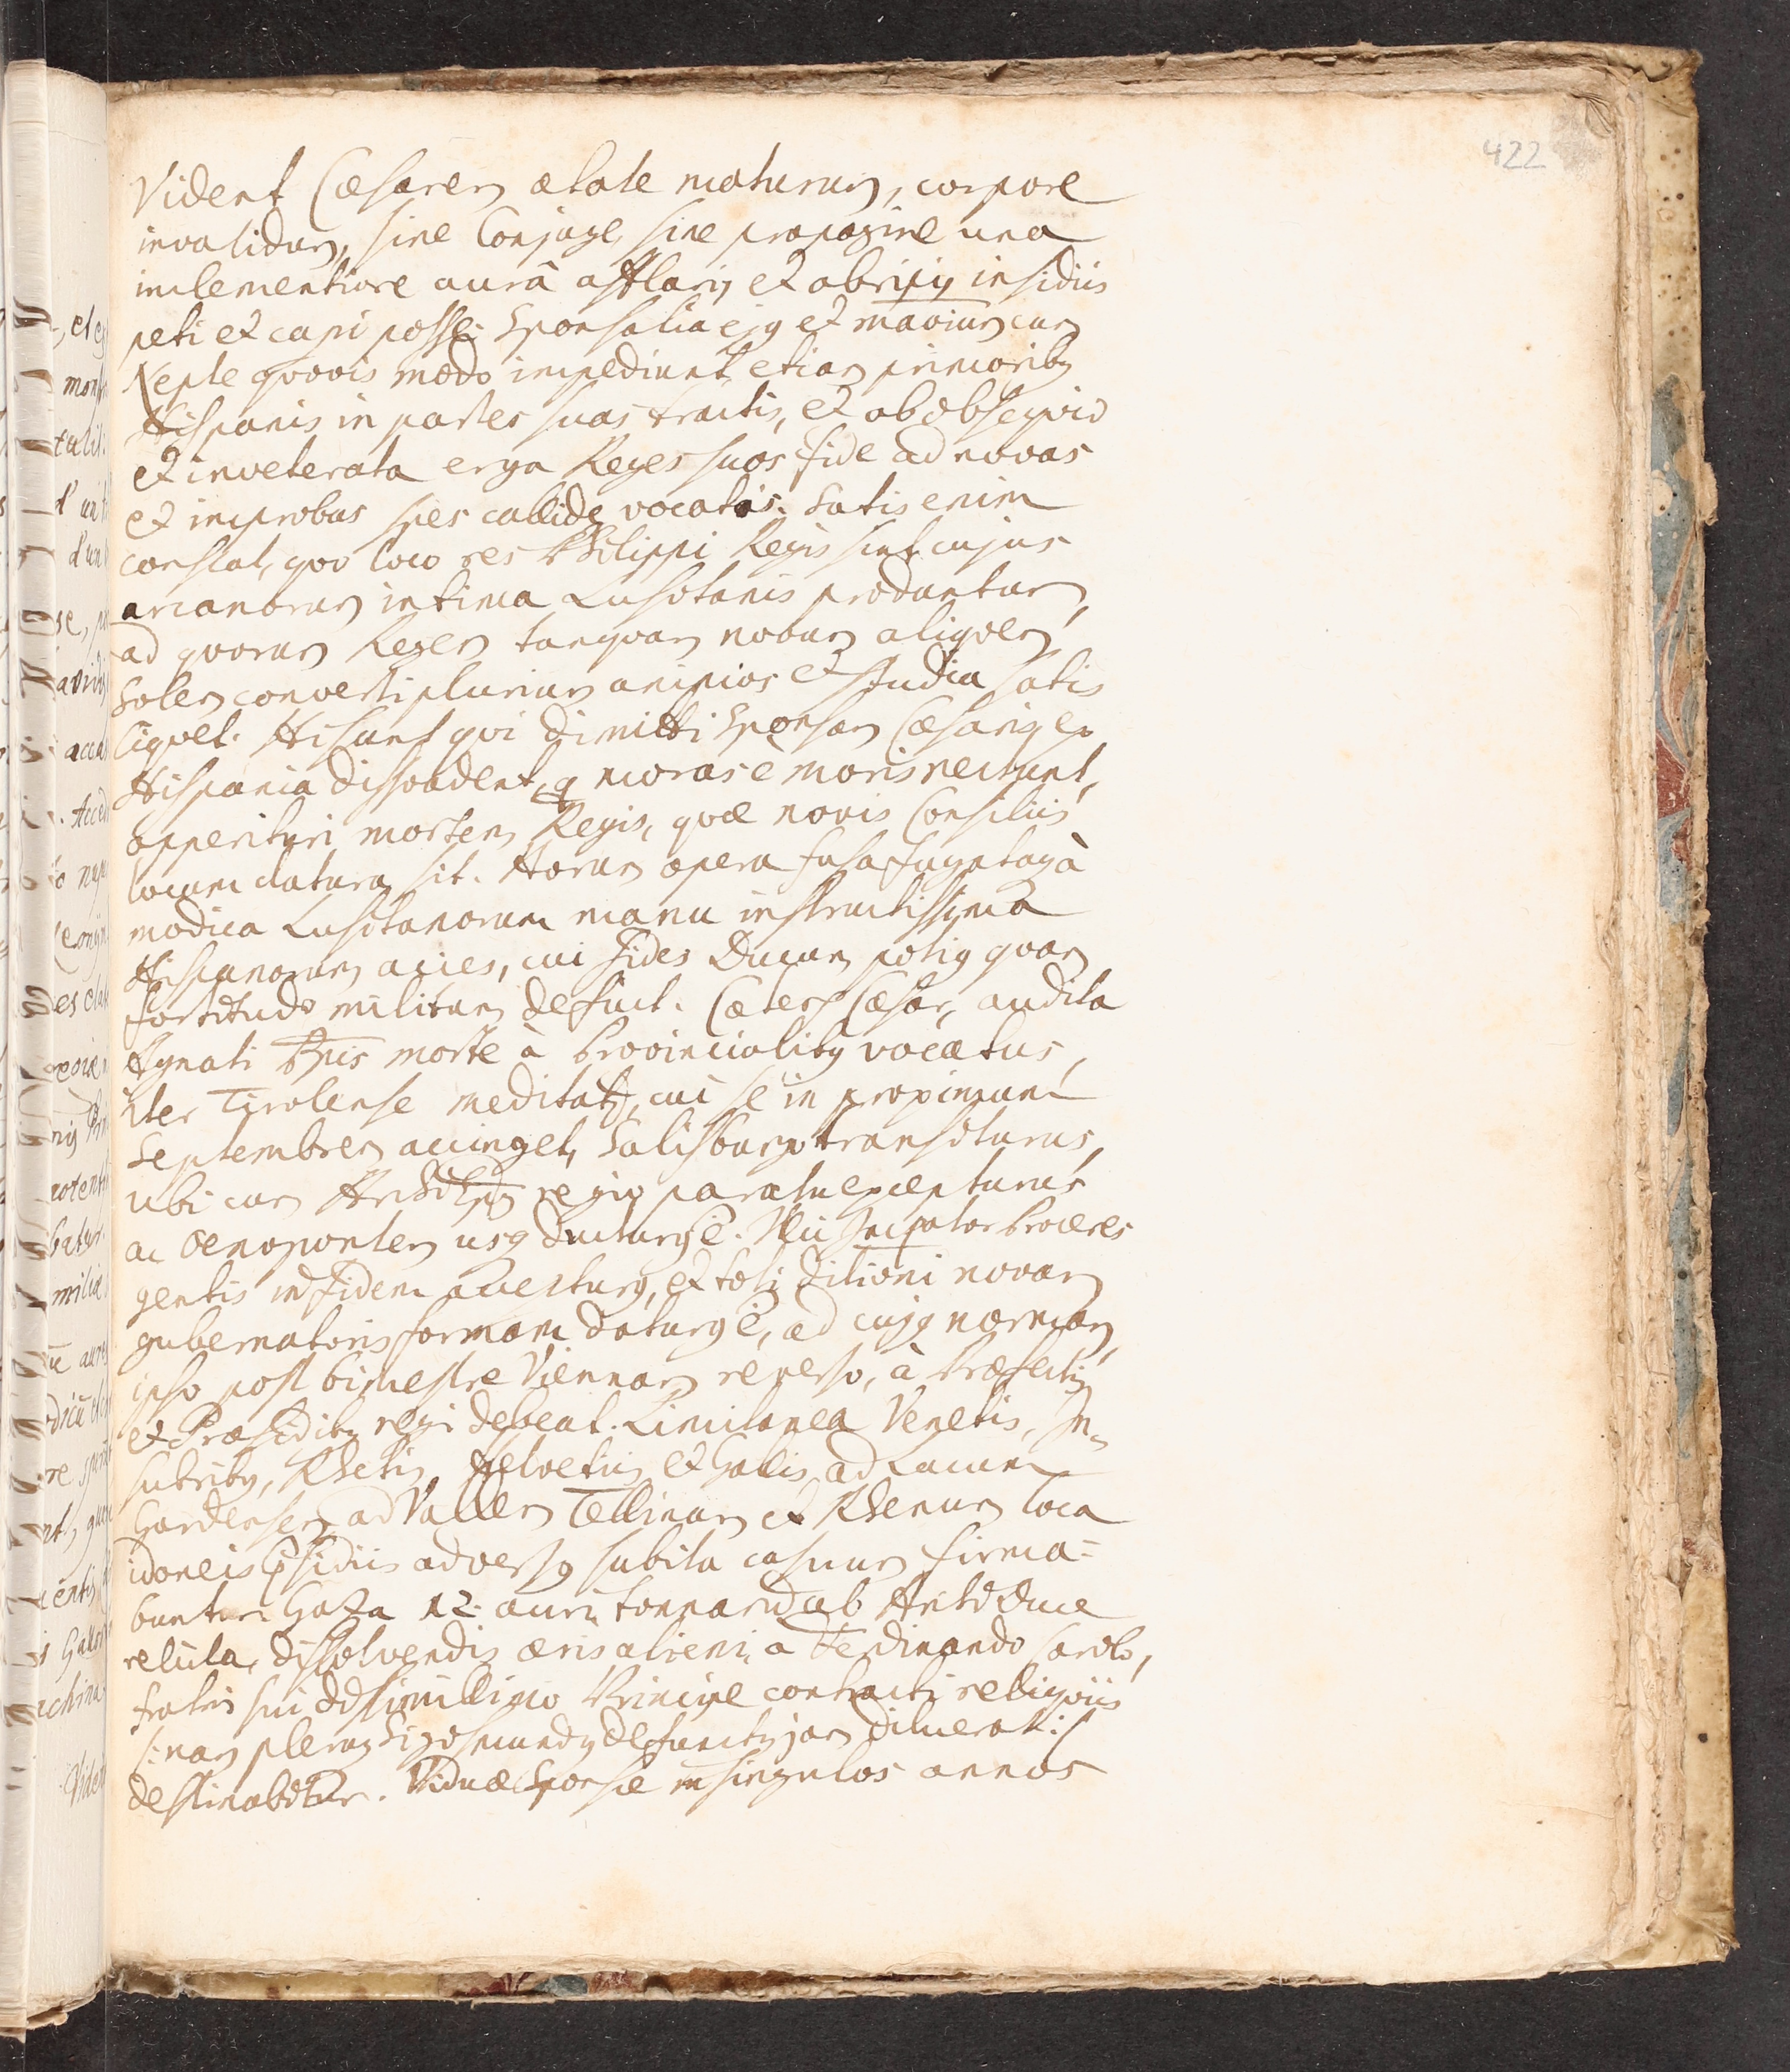 422
Vident Cæsarem ætate maturum, corpore
invalidum, sine Conjuge, sine propagine una
inclementiore aurâ afflari et abripi, insidiis
peti et capi posse. Sponsalia ejq et maxium cum
Nepte qvovis modo impediunt, etiam primoribq
Hispanis in partes suas tractis, et ab obseqvio
et inveterata erga Reges suos fide ad novas
et improbas spes callide vocatis. Satis enim
constat, qvo loco res Philippi Regis sint, cujus
arcanorum intima Lusitanis produntur,
ad qvorum Regem tanqvam novum aliqvem
Solem converti plurium animos et studia satis
liqvet. Hi sunt qvi dimitti Sponsam Cæsaris ex
Hispania dissvadent, q moras e moris nectunt,
opperituri mortem Regis, qvæ novis Consiliis
locum datura sit. Horum opera fusa fugataq à
modica Lusitanorum manu instructissima
Hispanorum acies, cui fides Ducum potiq qvam
fortitudo militum defuit. Cæterum Cæsar, audita
Agnati Pnis morte à Provincialibq vocatus,
iter Tirolense meditatur, cui se in propinqum
Septembrem accinget, Salisburgo transiturus,
ubi eum regio paratu excepturus
ac Oenopontem usq ducturq e. Proceres
gentis in fidem et toti ditioni novam
gubernatoris formam daturq e, ad cujq normam,
ipso post bimestre Viennam reverso, à Præfectis
et Præsidibq regi debeat. Limitanea Venetis, In=
subribq, Rhetis, Helvetiis et Gallis ad Lacum
Gardensem, ad Vallem Tellinam et Rhenum loca
idoneis psidiis adversq subita casuum firma=
buntur. Gaza 12. auri tonnarum ab Archiduce
relicta, dissolvendis æris alieni, a Ferdinando Carolo,
fratri sui dissimillimo Principe contracti reliqviis
/: nam plerumq Sigismundq defunctq jam diluerat :/
destinabitur. Viduæ Sponsæ in singulos annos